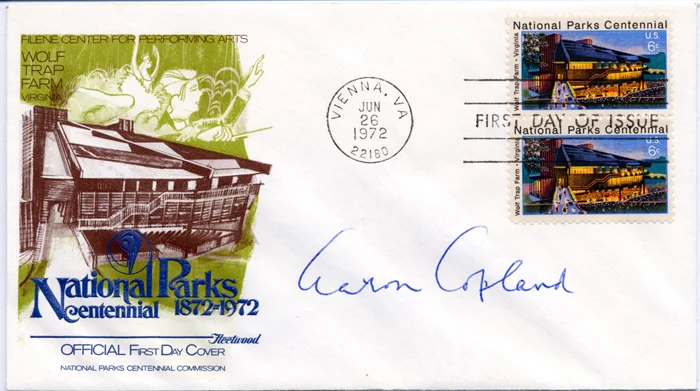 FILENE CENTER FOR PERFORMING ARTS
WOLF
TRAP
FARM
VIRGINIA
National Parks
Centennial 1872-1972
Fleetwood
OFFICIAL FIRST DAY COVER
NATIONAL PARKS CENTENNIAL COMMISSION
VIENNA, VA
JUN
26
1972
22180
National Parks Centennial
U.S.
6c
Wolf Trap Farm - Virginia
FIRST DAY OF ISSUE
National Parks Centennial
U.S.
6c
Wolf Trap Farm - Virginia
Aaron Copland